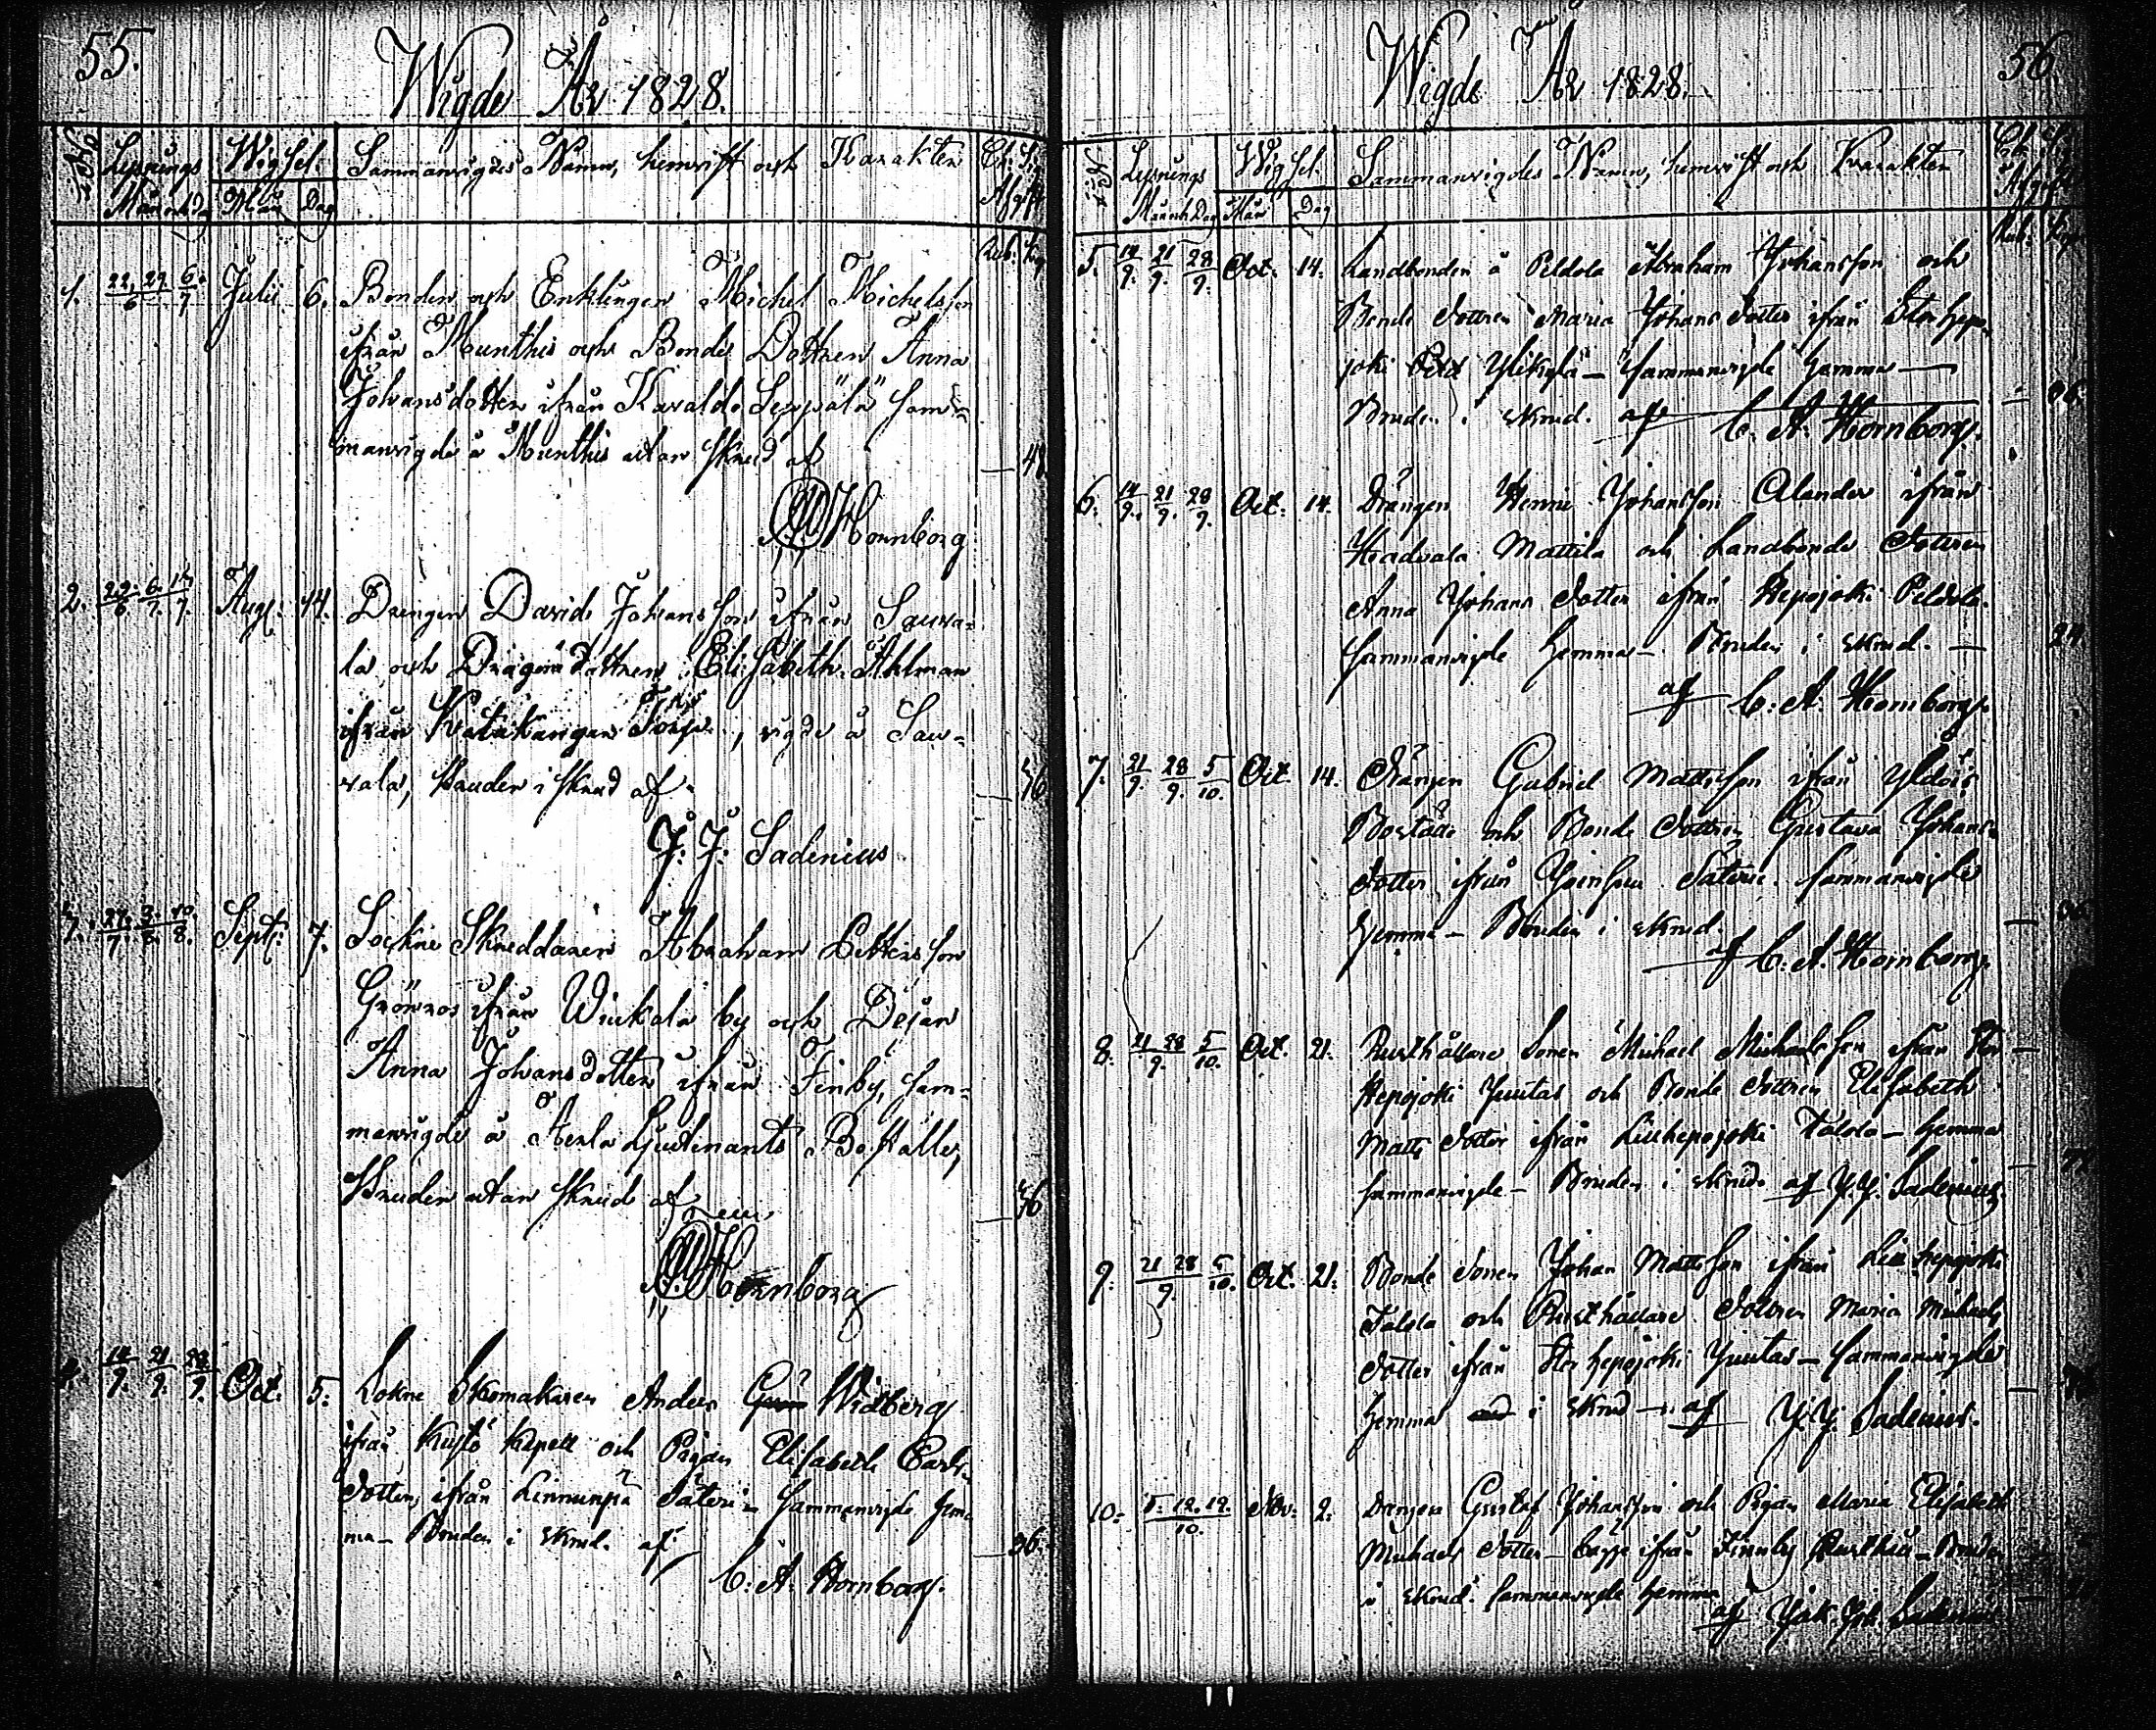 55.
Wigde År 1828.
No Lysnings Wigsel. Sammanvigdes Namn, hemvist och Karakter
Mån och Dag Mån Dag Afgift
Rub. Kop
1. 22/6 29/6 6/7 Julii 6. Bonden och Enklingen Michel Michelsson
ifrån Munthis och Bonde Dottren Anna
Johansdotter ifrån Karalda Seppälä sam-
manvigde å Munthis utan skrud af
— 48
Hornborg
2. 29/6 6/7 Aug. 14. Drengen David Johansson ifrån Sauva-
la och Dragon dottren Elisabeth Åhlman
ifrån Torp, vigde å Sau-
vala, Bruden i skrud af
J. J. Sadenius
3. 27/7 3/8 10/8 Sept. 7. Sockne Skreddaren Abraham Petterson
Grönroos ifrån Wiukala by och Pigan
Anna Johansdotter ifrån Finby, sam-
manvigde å Aerla Ljeutenants Boställe,
Bruden utan skrud af
Hornborg
4. 14/9 21/9 28/9 Oct. 5. Sokne Skomakaren Anders Widberg
ifrån Kustö Kapell och Pigan Elisabeth Carls-
dotter, ifrån Linnunpä Säteri – Sammanvigde hem-
ma – Bruden i skrud. af
— 36.
C. A. Hornborg.
56
Wigde År 1828.
No Lysnings Wigsel. Sammanvigdes Namn, hemvist och Karakter
Mån och Dag Mån Dag Afgift
5. 14/9. 21/9. 28/9. Oct. 14. Landbonden å Peldola Abraham Johansson och
Bonde Dottren Maria Johans dotter ifrån Stor hepo-
joki Ylikylä – Sammanvigde hemma —
Bruden i skrud. af C. A. Hornborg.
6. 14/9. 21/9. 28/9. Oct. 14. Drängen Henric Johansson Alander ifrån
Hadvala Mattila och Landbonde Dottren
Anna Johans dotter ifrån Hepojoki Peldola.
Sammanvigde hemma – Bruden i skrud. — 24.
af C. A. Hornborg.
7. 21/9. 28/9. 5/10. Oct 14. Drängen Gabriel Mattsson ifrån
och Bonde Dottren Gustava Johans-
dotter ifrån Joensuu Säterie. Sammanvigde
hemma – Bruden i skrud.
af C. A. Hornborg.
8. 21/9. 28/9. 5/10. Oct. 21. Rusthållare Sonen Michael Michaelsson ifrån Stor
Hepojoki Juntas och Bonde dottren Elisabeth
Matts dotter ifrån Lillhepojoki Talola – hemma
sammanvigde – Bruden i skrud. af J. J. Sadenius.
9. 21/9. 28/9. 5/10. Oct. 21. Bonde Sonen Johan Mattsson ifrån Lill hepojoki
Talola och Rusthållare Dottren Maria Michaels
dotter ifrån Stor hepojoki Juntas – Sammanvigde
hemma i skrud – af J. J. Sadenius.
10. 5. 12. 19./10. Nov. 2. Drängen Gustaf Johansson och Pigan Maria Elisabeth
Michaels dotter – begge ifrån Finnby Rusthål – Bruden
i skrud. Sammanvigde hemma
af Jak. Joh. Sadenius